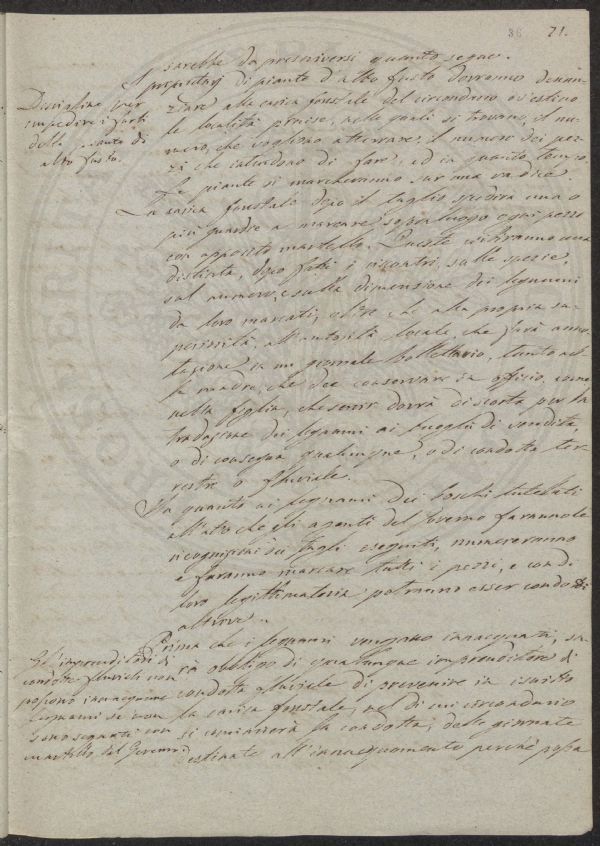 36 21.
sarebbe da prescriversi quanto segue.
I proprietarj di piante d'alto fusto dovranno denun-
ziare alla carica forestale del circondario ov'esistono
le località precise, nelle quali si trovano, il nu-
mero, che vogliono atterrare, il numero dei pez-
zi che intendono di fare, ed in quanto tempo.
Le piante si marcheranno sur una radice.
La carica forestale dopo il taglio spedirà una o
più guardie a marcare sopra luogo ogni pezzo
con apposito martello. Queste
distinta, dopo fatti i riscontri, sulle spezie,
sul numero, e sulla dimensione dei legnami
da loro marcati, oltre che alla propria su-
periorità, all'autorità locale, che farà anno-
tazione in un giornale bollettario, tanto nel-
la madre, che dee conservare in officio, come
nella figlia, che servir dovrà di scorta per la
traduzione dei legnami ai luoghi di vendita,
o di consegna qualunque, o di condotta ter-
restre o fluviale.
In quanto ai legnami dei boschi tutelati
all'atto che gli agenti del Governo faranno le
ricognizioni dei tagli eseguiti, numereranno
e faranno marcare tutti i pezzi, e con di
loro legittimatoria potranno esser condotti
altrove.
Prima che i legnami vengano innacquati, sa-
rà obbligo di qualunque imprenditore di
condotta fluviale di prevenire in iscritto
la carica forestale, nel di cui circondario
si comincierà la condotta, delle giornate
destinate all'innacquamento perché possa
Discipline per
impedire i furti
delle piante di
alto fusto.
Gl'imprenditori di
condotte fluviali non
possono innacquare
legnami se non
sono segnati con
martello del Governo